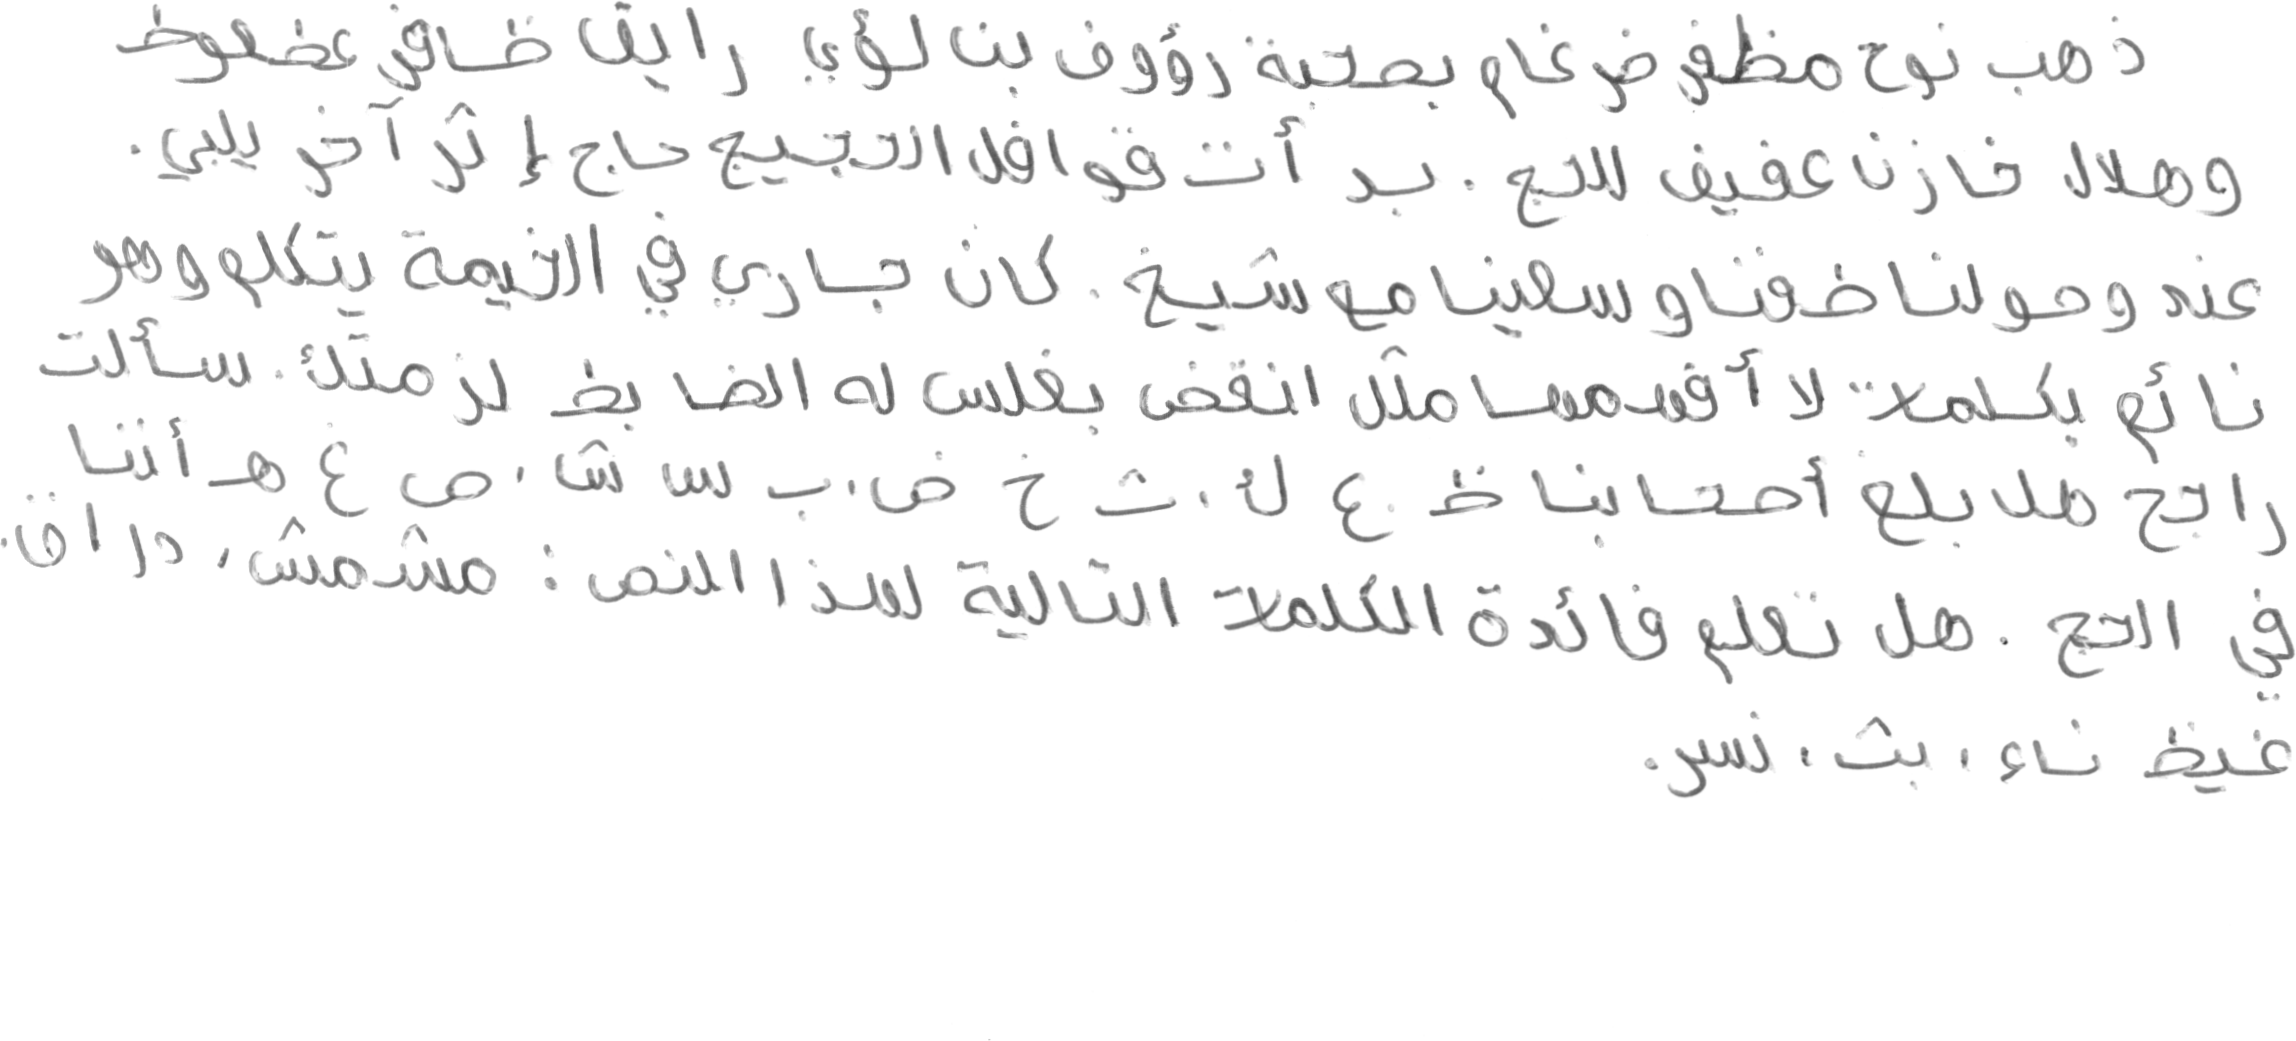 ذهب نوح مظفر ضرغام بصحبة رؤوف بن لؤي رايق ظافر عضعوظ
وهلال خازن عفيف للحج. بدأت قوافل الحجيج حاج إثر آخر يلبي.
عند وصولنا طفنا وسعينا مع شيخ. كان جاري في الخيمة يتكلم وهو
نائم بكلمات لا أفهمها مثل انقض بغلس له الضابط لزمتك. سألت
راجح هل بلغ أصحابنا ظ ع ك، ث خ ض، ب س ش، ص غ هـ أننا
في الحج. هل تعلم فائدة الكلمات التالية لهذا النص: مشمش، دراق.
غيظ ناء، بث، نسر.